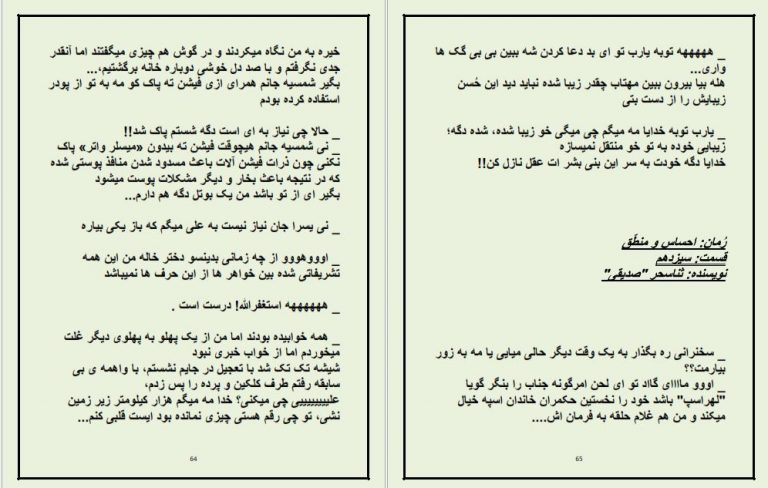 خیره به من نگاه میکردند و در گوش هم چیزی میگفتند اما آنقدر
جدی نگرفتم و با صد دل خوشی دوباره خانه برگشتیم،...
بگیر شمسیه جانم همرای ازی فیشن ته پاک کو مه به تو از پودر
استفاده کرده بودم
_ حالا چی نیاز به ای است دگه شستم پاک شد!!
_ نی شمسیه جانم هیچوقت فیشن ته بیدون «میسلر واتر» پاک
نکنی چون ذرات فیشن آلات باعث مسدود شدن منافذ پوستی شده
که در نتیجه باعث بخار و دیگر مشکلات پوست میشود
بگیر ای از تو باشد من یک بوتل دگه هم دارم...
_ نی یسرا جان نیاز نیست به علی میگم که باز یکی بیاره
_ اوووهوو و از چه زمانی بدینسو دختر خاله من این همه
تشریفاتی شده بین خواهر ها از این حرف ها نمیباشد
_ هههههه استغفرالله! درست است .
_ همه خوابیده بودند اما من از یک پهلو به پهلوی دیگر غلت
میخوردم اما از خواب خبری نبود
شیشه تک تک شد با تعجیل در جایم نشستم، با واهمه ی بی
سابقه رفتم طرف کلکین و پرده را پس زدم،
علیییییییی چی میکنی؟ خدا مه میگم هزار کیلومتر زیر زمین
نشی، تو چی رقم هستی چیزی نمانده بود ایست قلبی کنم...
64
_ هههههه توبه یارب تو ای بد دعا کردن شه ببین بی بی گک ها
واری...
هله بیا بیرون ببین مهتاب چقدر زیبا شده نباید دید این حُسن
زیبایش را از دست بتی
_ یارب توبه خدایا مه میگم چی میگی خو زیبا شده، شده دگه؛
زیبایی خوده به تو خو منتقل نمیسازه
خدایا دگه خودت به سر این بنی بشر ات عقل نازل کن!!
رُمان: احساس و منطُق
قسمت: سیزدهم
نویسنده: ثناسحر "صدیقی"
_ سخنرانی ره بگذار به یک وقت دیگر حالی میایی یا مه به زور
بیارمت؟؟
_ اووو ماااای گااد تو ای لحن امرگونه جناب را بنگر گویا
"لهراسپ" باشد خود را نخستین حکمران خاندان اسپه خیال
میکند و من هم غلام حلقه به فرمان اش....
65